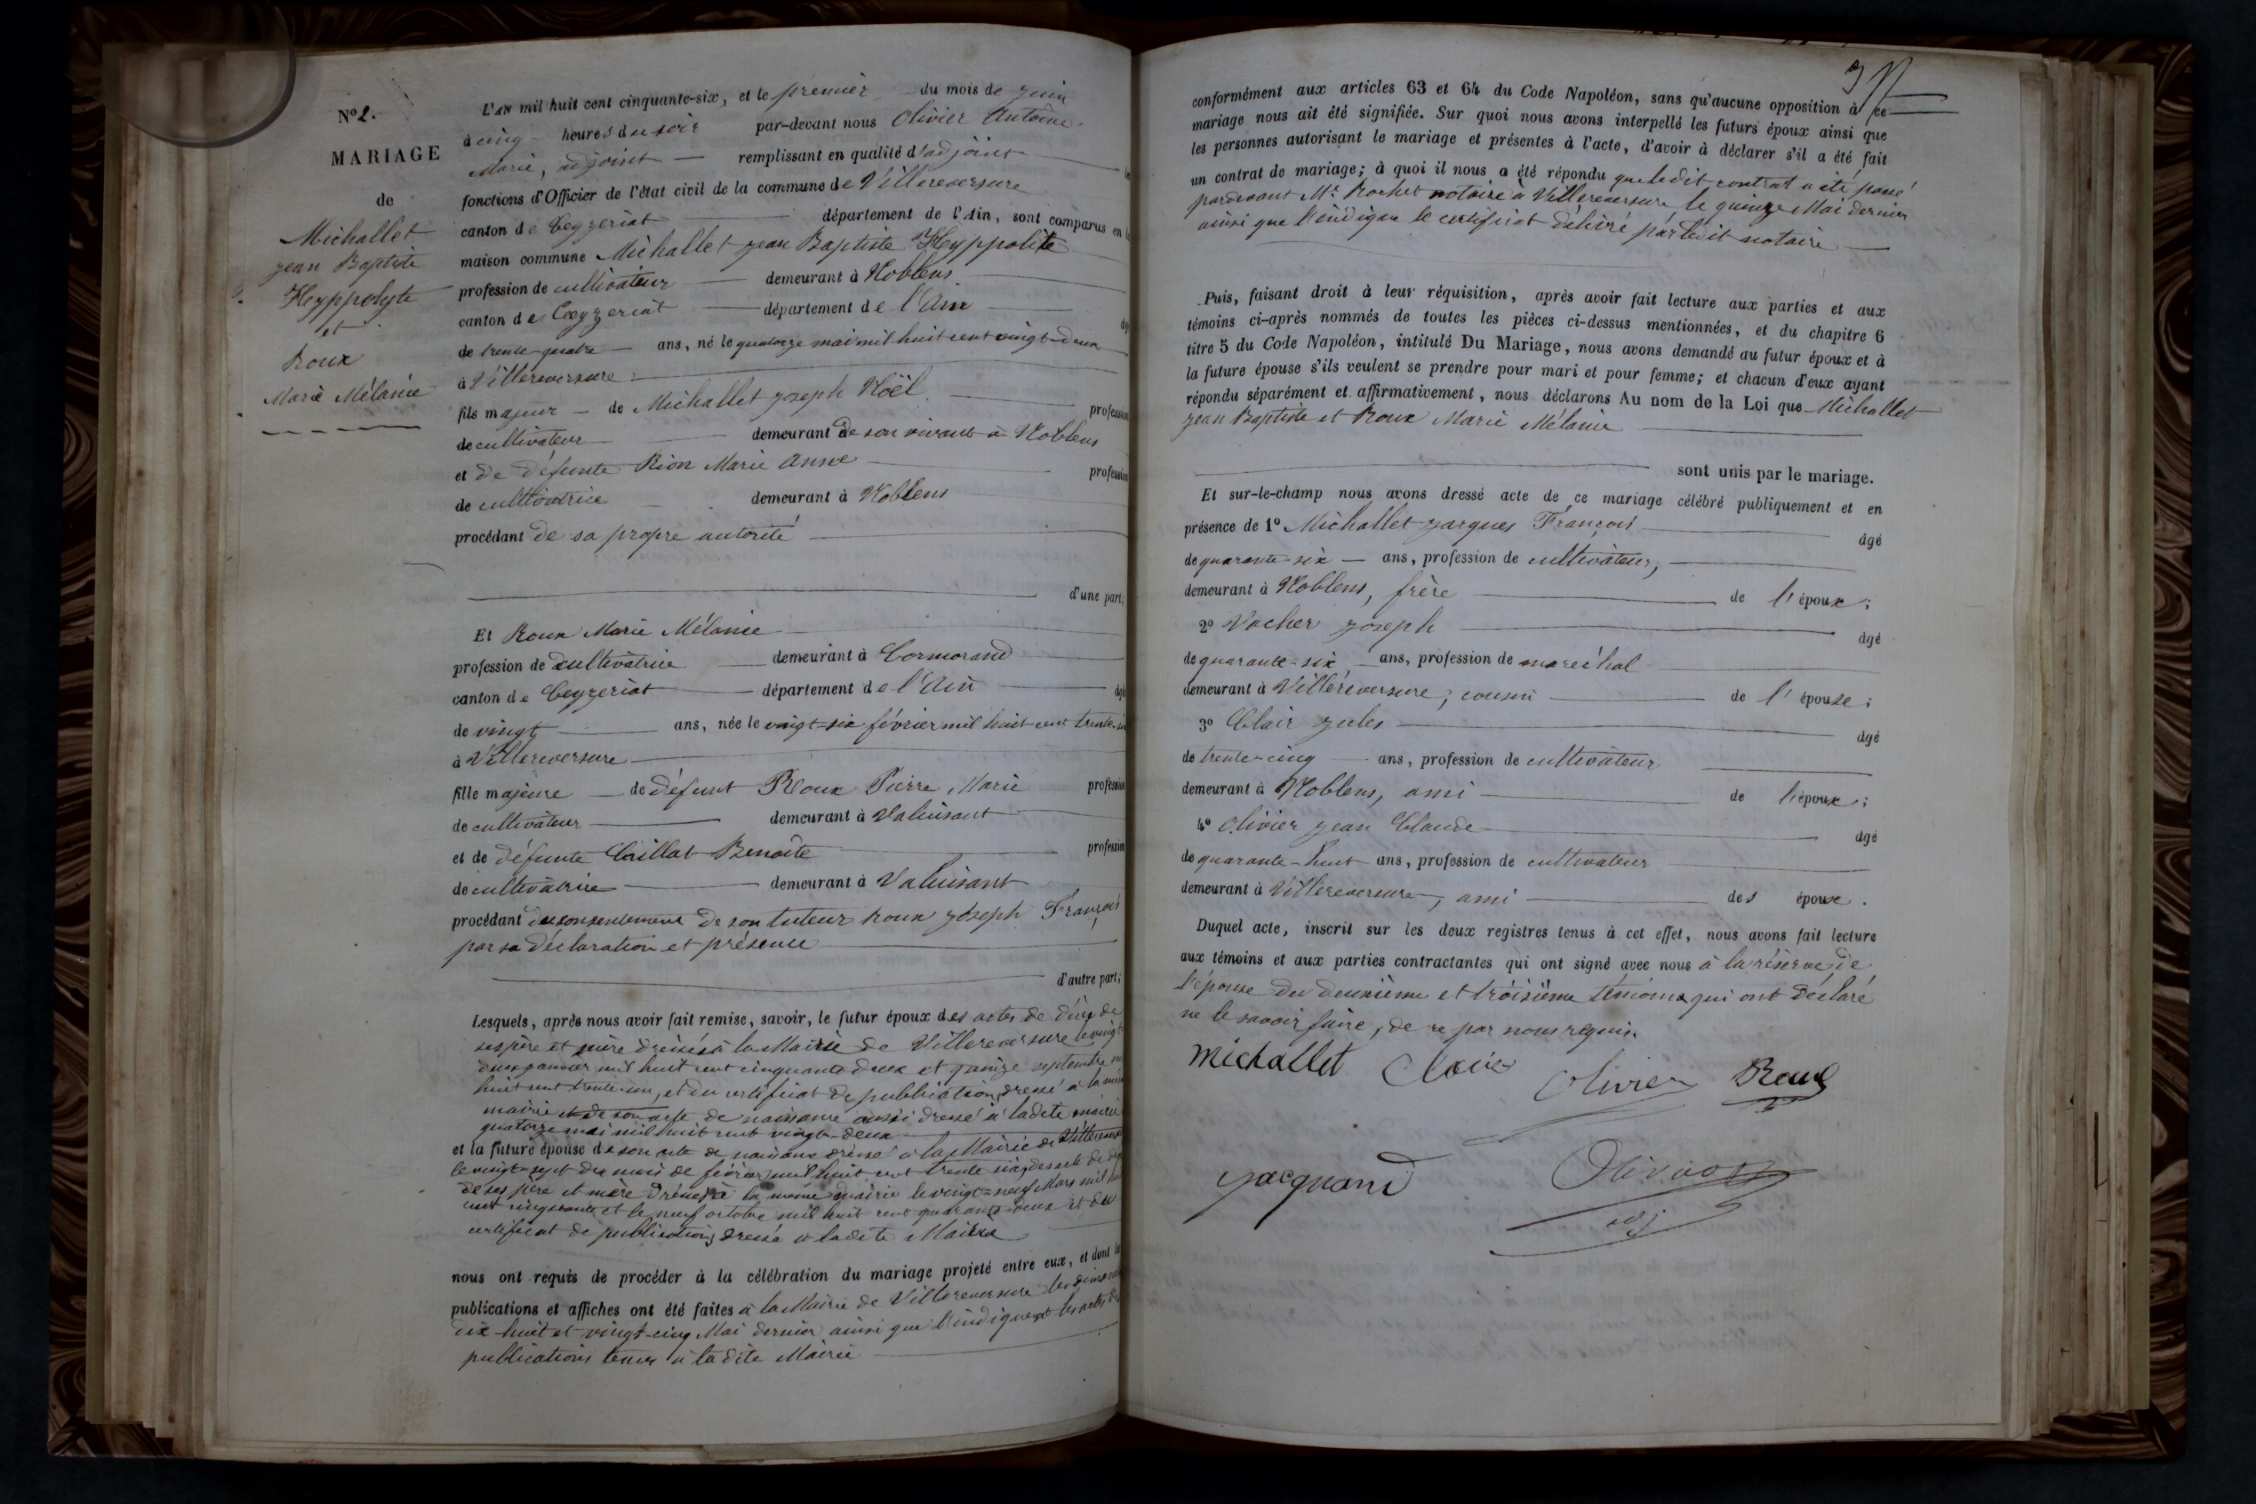 N° 2.
MARIAGE
de
Michallet
jean Baptiste
Hyppolyte
et
Roux
Marie Mélanie
L'an mil huit cent cinquante-six, et le premier du mois de juin
à cinq heures du soir par-devant nous Olivier Antoine
Marie, adjoint remplissant en qualité d'adjoint les
fonctions d'Officier de l'état civil de la commune de Villereversure
canton de Ceyzeriat département de l'Ain, sont comparus en la
maison commune Michallet jean Baptiste Hyppolite
profession de cultivateur demeurant à Noblens
canton de Ceyzeriat département de l'Ain âgé
de trente-quatre ans, né le quatorze mai mil huit cent vingt-deux
à Villereversure
fils majeur de Michallet joseph Noël profession
de cultivateur demeurant de son vivant à Noblens
et de défunte Rion Marie Anne profession
de cultivatrice demeurant à Noblens
procédant de sa propre autorité
d'une part;
Et Roux Marie Mélanie
profession de cultivatrice demeurant à Cormorand
canton de Ceyzeriat département de l'Ain âgé
de vingt ans, née le vingt-six février mil huit cent trente-six
à Villereversure
fille majeure de défunt Roux Pierre Marie profession
de cultivateur demeurant à Valuisant
et de défunte Caillat Benoîte profession
de cultivatrice demeurant à Valuisant
procédant du consentement de son tuteur Roux joseph François
par sa déclaration et présence
d'autre part;
Lesquels, après nous avoir fait remise, savoir, le futur époux des actes de décès de
ses père et mère dressés à la Mairie de Villereversure le vingt
deux janvier mil huit cent cinquante deux et quinze septembre mil
huit cent trente-un, et du certificat de publication, dressé à la même
mairie et de son acte de naissance aussi dressé à ladite mairie
quatorze mai mil huit cent vingt-deux
et la future épouse de son acte de naissance dressé à la Mairie de Villereversure
le vingt-sept du mois de février mil huit cent trente six, des acte de décès
de ses père et mère dressés à la même mairie le vingt-neuf Mars mil huit
cent cinquante et le neuf octobre mil huit cent quarante-deux et du
certificat de publication, dressé à ladite Mairie
nous ont requis de procéder à la célébration du mariage projeté entre eux, et dont les
publications et affiches ont été faites à la Mairie de Villereversure les dimanches
dix-huit et vingt-cinq Mai dernier ainsi que l'indiquent les actes de
publications tenus à la dite Mairie
conformément aux articles 63 et 64 du Code Napoléon, sans qu'aucune opposition à ce
mariage nous ait été signifiée. Sur quoi nous avons interpellé les futurs époux ainsi que
les personnes autorisant le mariage et présentes à l'acte, d'avoir à déclarer s'il a été fait
un contrat de mariage; à quoi il nous a été répondu que le dit contrat a été passé
pardevant Mr. Rochet notaire à Villereversure le quinze Mai dernier
ainsi que l'indique le certificat délivré par le dit notaire
Puis, faisant droit à leur réquisition, après avoir fait lecture aux parties et aux
témoins ci-après nommés de toutes les pièces ci-dessus mentionnées, et du chapitre 6
titre 5 du Code Napoléon, intitulé Du Mariage, nous avons demandé au futur époux et à
la future épouse s'ils veulent se prendre pour mari et pour femme; et chacun d'eux ayant
répondu séparément et affirmativement, nous déclarons Au nom de la Loi que Michallet
jean Baptiste et Roux Marie Mélanie
sont unis par le mariage.
Et sur-le-champ nous avons dressé acte de ce mariage célébré publiquement et en
présence de 1° Michallet jacques François âgé
de quarante-six ans, profession de cultivateur,
demeurant à Noblens, frère de l'époux;
2° Vacher joseph âgé
de quarante-six ans, profession de maréchal
demeurant à Villereversure, cousin de l'épouse;
3° Clair jules âgé
de trente-cinq ans, profession de cultivateur
demeurant à Noblens, ami de l'époux;
4° Olivier jean Claude âgé
de quarante-huit ans, profession de cultivateur
demeurant à Villereversure, ami des époux.
Duquel acte, inscrit sur les deux registres tenus à cet effet, nous avons fait lecture
aux témoins et aux parties contractantes qui ont signé avec nous à la réserve de
l'épouse du deuxième et troisième témoins qui ont déclaré
ne le savoir faire, de ce par nous requis.
Michallet Olivier Roux
jacquand
adj